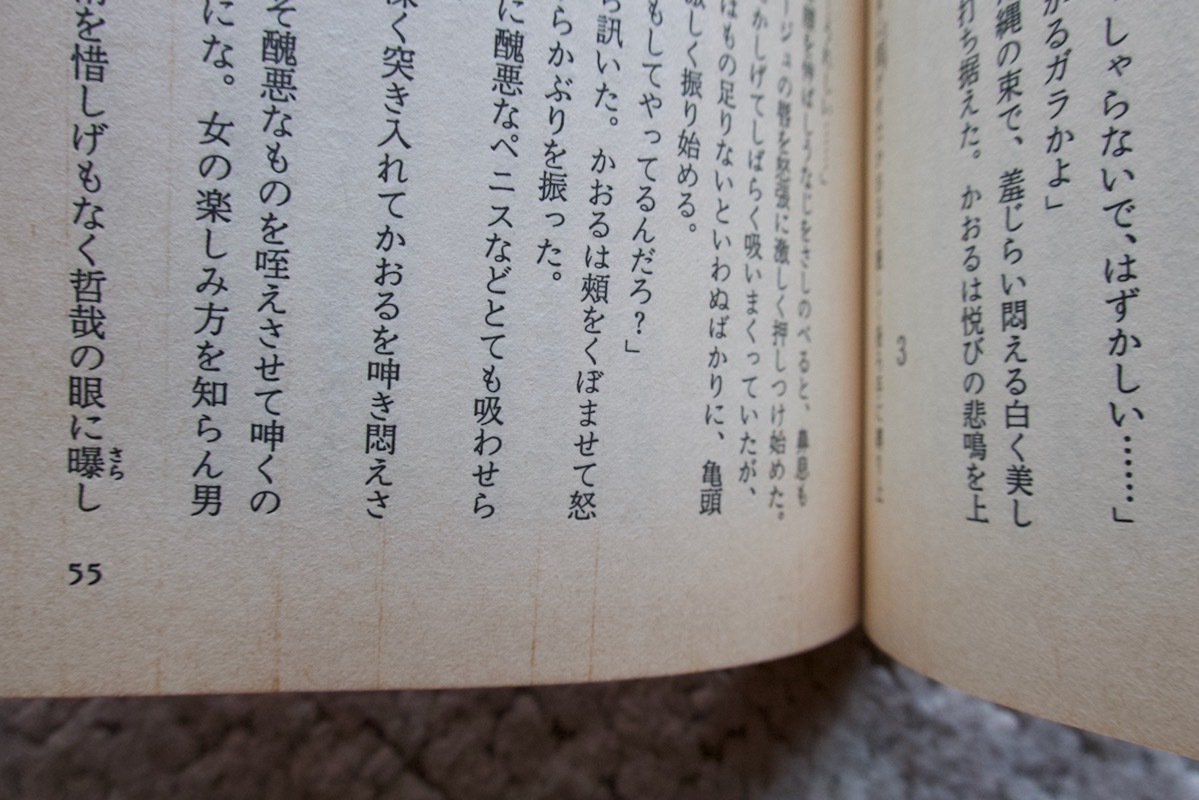 しゃらないで、はずかしい……」
るガラかよ」
縄の束で、羞じらい悶える白く美し
打ち据えた。かおるは悦びの悲鳴を上
3
を伸ばしうなじをさしのべると、鼻息も
ージュの唇を怒張に激しく押しつけ始めた。
かしげてしばらく吸いまくっていたが、
はもの足りないといわぬばかりに、亀頭
激しく振り始める。
もしてやってるんだろ？」
ら訊いた。かおるは頬をくぼませて怒
らかぶりを振った。
に醜悪なペニスなどとても吸わせら
深く突き入れてかおるを呻き悶えさ
そ醜悪なものを咥えさせて呻くの
にな。女の楽しみ方を知らん男
を惜しげもなく哲哉の眼に曝し
さら
55